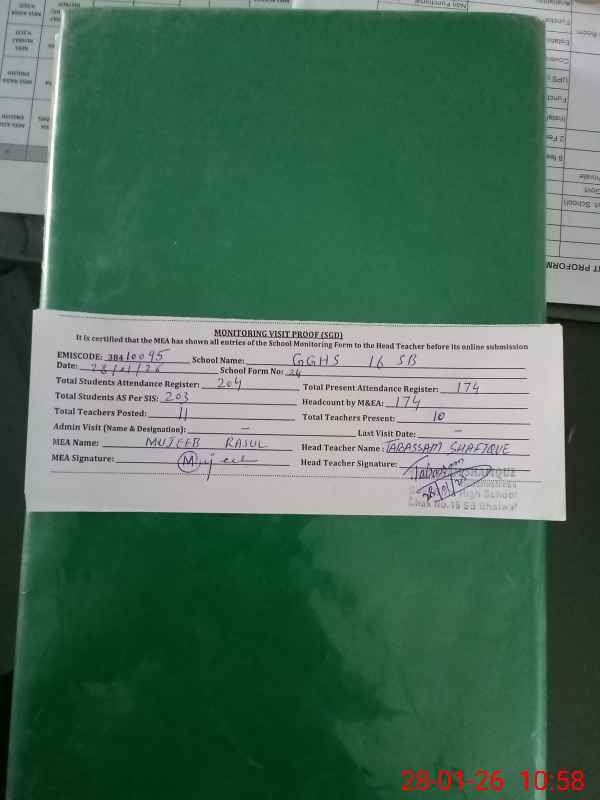 Non Functional
MONITORING VISIT PROOF (SGD)
It is certified that the MEA has shown all entries of the School Monitoring Form to the Head Teacher before its online submission
EMISCODE: 38410095 School Name: GGHS 16 SB
Date: 28/01/26 School Form No: 24
Total Students Attendance Register: 204 Total Present Attendance Register: 174
Total Students AS Per SIS: 203 Headcount by M&EA: 174
Total Teachers Posted: 11 Total Teachers Present: 10
Admin Visit (Name & Designation): – Last Visit Date: –
MEA Name: MUJEEB RASUL Head Teacher Name: TABASSAM SHAFIQUE
MEA Signature: Mujeeb Head Teacher Signature: Tabassam
28/01/26
High School
Chak No.16 SB Bhalwal
28-01-26 10:58